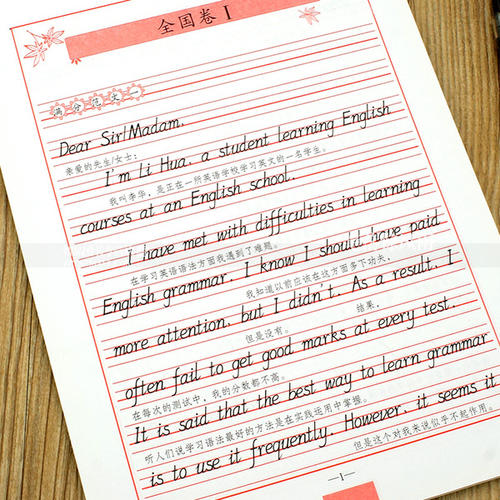 全国卷 I
满分范文一
Dear Sir/Madam,
亲爱的先生/女士：
I'm Li Hua, a student learning English
我叫李华，是正在一所英语学校学习英文的一名学生。
courses at an English school.
I have met with difficulties in learning
在学习英语语法方面我遇到了难题。
English grammar. I know I should have paid
我知道以前应该在这方面多下功夫，
more attention, but I didn't. As a result, I
但是没有。 结果，
often fail to get good marks at every test.
在每次的测试中，我的分数都不高。
It is said that the best way to learn grammar
听人们说学习语法最好的方法是在实践运用中掌握。
is to use it frequently. However, it seems it
但是这个对我来说似乎不起作用。
1